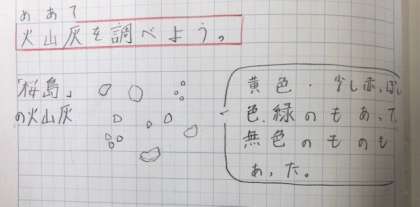 めあて
火山灰を調べよう。
「桜島」
の火山灰
黄色・少し赤っぽい
色、緑のもあって
無色のものも
あった。